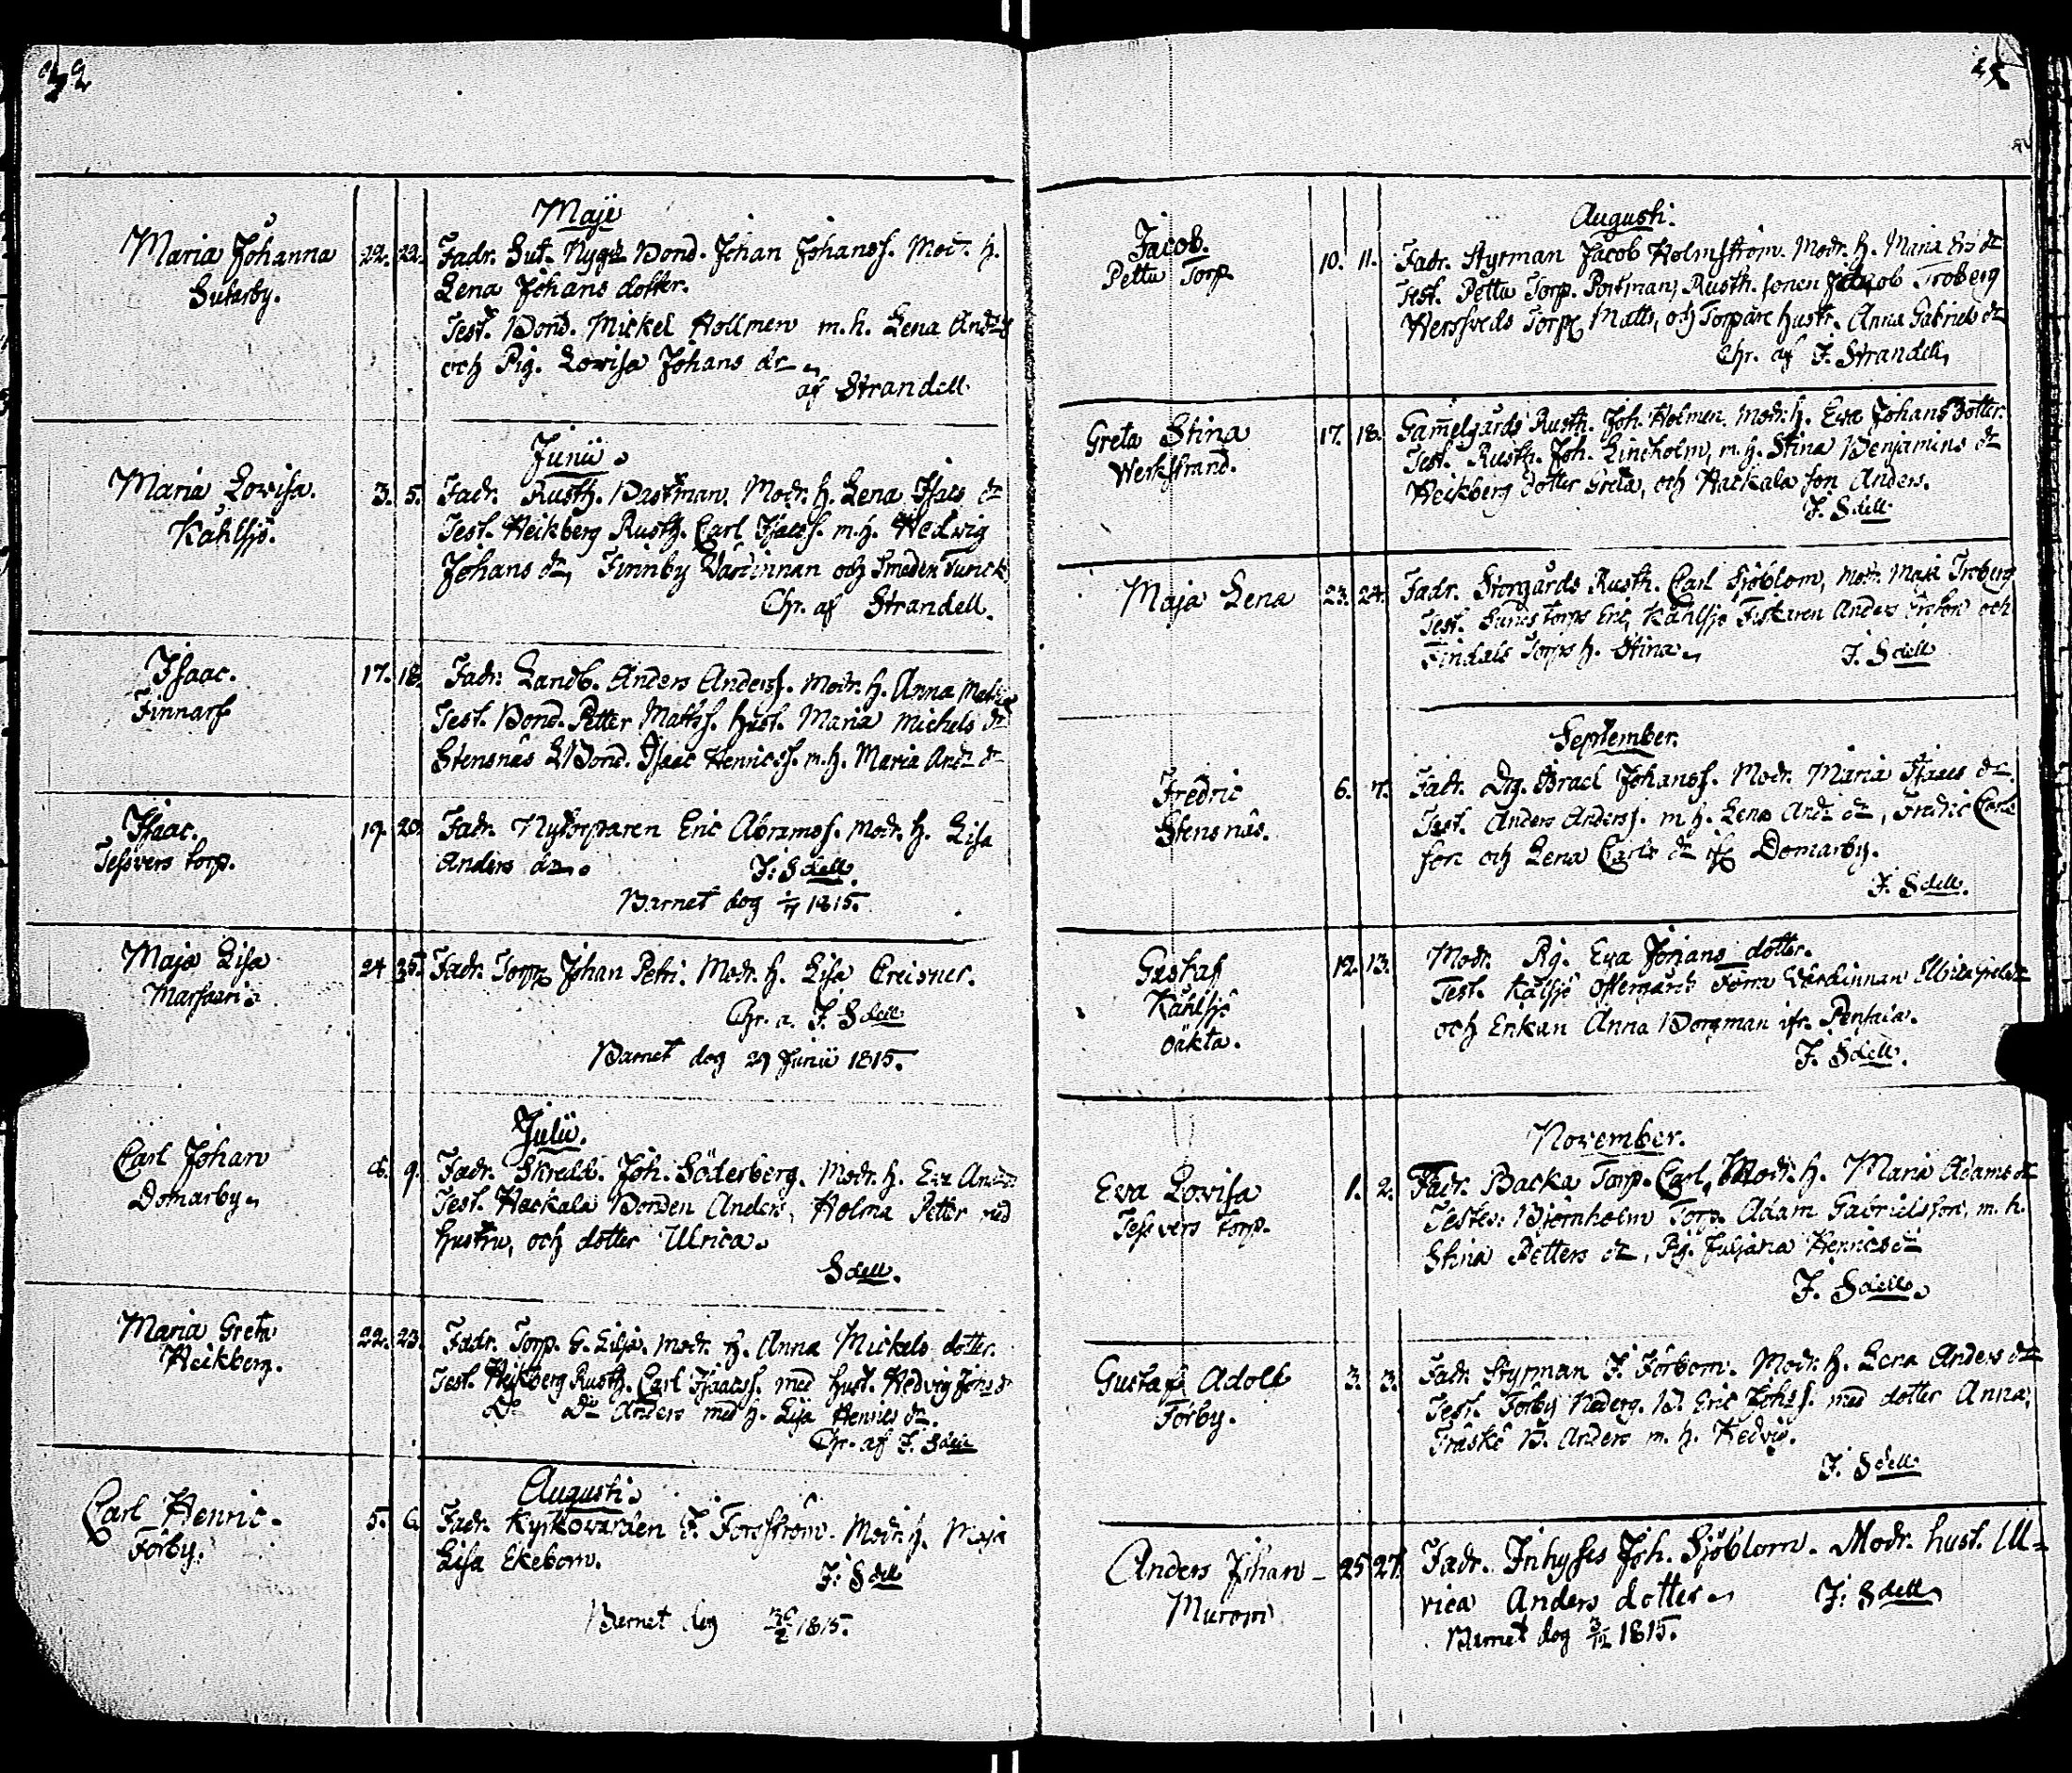 32
Maje
Maria Johanna 22. 23. Fadr. Sut. Nyg. Bond. Johan Johanss. Modr. h.
Sutarby. Lena Johans dotter.
Test. Bond. Mickel Hollmen m. h. Lena And
och Pig. Lovisa Johans dr
af Strandell.
Junii
Maria Lovisa. 3. 5. Fadr. Rusth. Bastman. Modr. h. Lena Isacs dr
Kåhlsjö. Test. Heikberg Rusth. Carl Isacss. m. h. Hedvig
Johans dr, Finnby Värdinnan och Smeden Turick
Chr. af Strandell.
Isaac. 17. 18. Fadr. Landb. Anders Anderss. Modr. h. Anna
Finnarf Test. Bond. Petter Mattss. hust. Maria Michels dr
Stensnäs Bond. Isaac Henricss. m. h. Maria And. dr
Isaac. 19. 20. Fadr. Nytorparen Eric Abramss. Modr. h. Lisa
Tessvers torp. Anders dr. J. Sdell.
Barnet dog 1815.
Maja Lisa 24 25. Fadr. Torp. Johan Petri. Modr. h. Lisa Creisner.
Marsaari Chr. a. J. Sdell
Barnet dog 29 Junii 1815.
Julii.
Carl Johan 6. 9. Fadr. Skredd. Joh. Söderberg. Modr. h. Eva
Domarby Test. Hackala Bonden Anders, Holma Petter med
hustru, och dotter Ulrica.
Sdell.
Maria Greta 22. 23. Fadr. Torp. G. Lilja. Modr. h. Anna Mickels dotter.
Heikberg. Test. Heikberg Rusth. Carl Isaacss. med hust. Hedvig Johs dr
Do Do Anders med h. Lisa Henrics dr.
Chr. af J. Sdell
Augusti.
Carl Henric 5. 6. Fadr. Kyrkovärden J. Forsström. Modr. h. Maja
Förby. Lisa Ekebom. J. Sdell
Barnet dog 1815.
Augusti.
Jacob. 10. 11. Fadr. Styrman Jacob Holmström. Modr. h. Maria Ers dr
Pettu Torp. Test. Pettu Torp. Portman, Rusth. sonen Jacob Troberg
Torp. Matts, och Torpare hustr. Anna Gabriels dr
Chr. af J. Strandell
Greta Stina 17. 18. Gamelgårds Rusth. Joh. Holmen. Modr. h. Eva Johans Dotter.
Werkstrand. Test. Rusth. Joh. Lindholm, m. h. Stina Benjamins dr
Heikberg dotter Greta, och Hackala son Anders.
J. Sdell.
Maja Lena 23. 24. Fadr. Storgårds Rusth. Carl Sjöblom, Modr. Maja Troberg
Test. torps Eric, Kåhlsjö Fiskaren Anders Ersson och
Findals Torps h. Stina. J. Sdell
September.
Fredric 6. 7. Fadr. Drg. Israel Johanss. Modr. Maria Isaacs dr.
Stensnäs. Test. Anders Anderss. m h. Lena And. dr, Fredric Carls
son och Lena Carls dr ifr. Domarby.
J. Sdell.
Gustaf 12. 13. Modr. Pig. Eva Johans dotter.
Kåhlsjö Test. Kålsjö förra Värdinnan
oäkta. och Enkan Anna Borgman ifr.
J. Sdell.
November.
Eva Lovisa 1. 2. Fadr. Backa Torp. Carl, Modr. h. Maria Adams dr
Tessvers torp. Testes. Björnholm Torp. Adam Gabrielsson, m. h.
Stina Petters dr, Pig. Juliana Henrics dr
J. Sdell.
Gustaf Adolf 3. 3. Fadr. Styrman J. Förbom. Modr. h. Lena Anders dr
Förby. Test. Förby Nederg. B. Eric Johs s. med dotter Anna,
Träskö B. Anders m. h. Hedvig.
J. Sdell
Anders Johan 25 27. Fadr. Inhyses Joh. Sjöblom. Modr. hust. Ul-
Murom rica Anders dotter. J. Sdell
Barnet dog 3/12 1815.